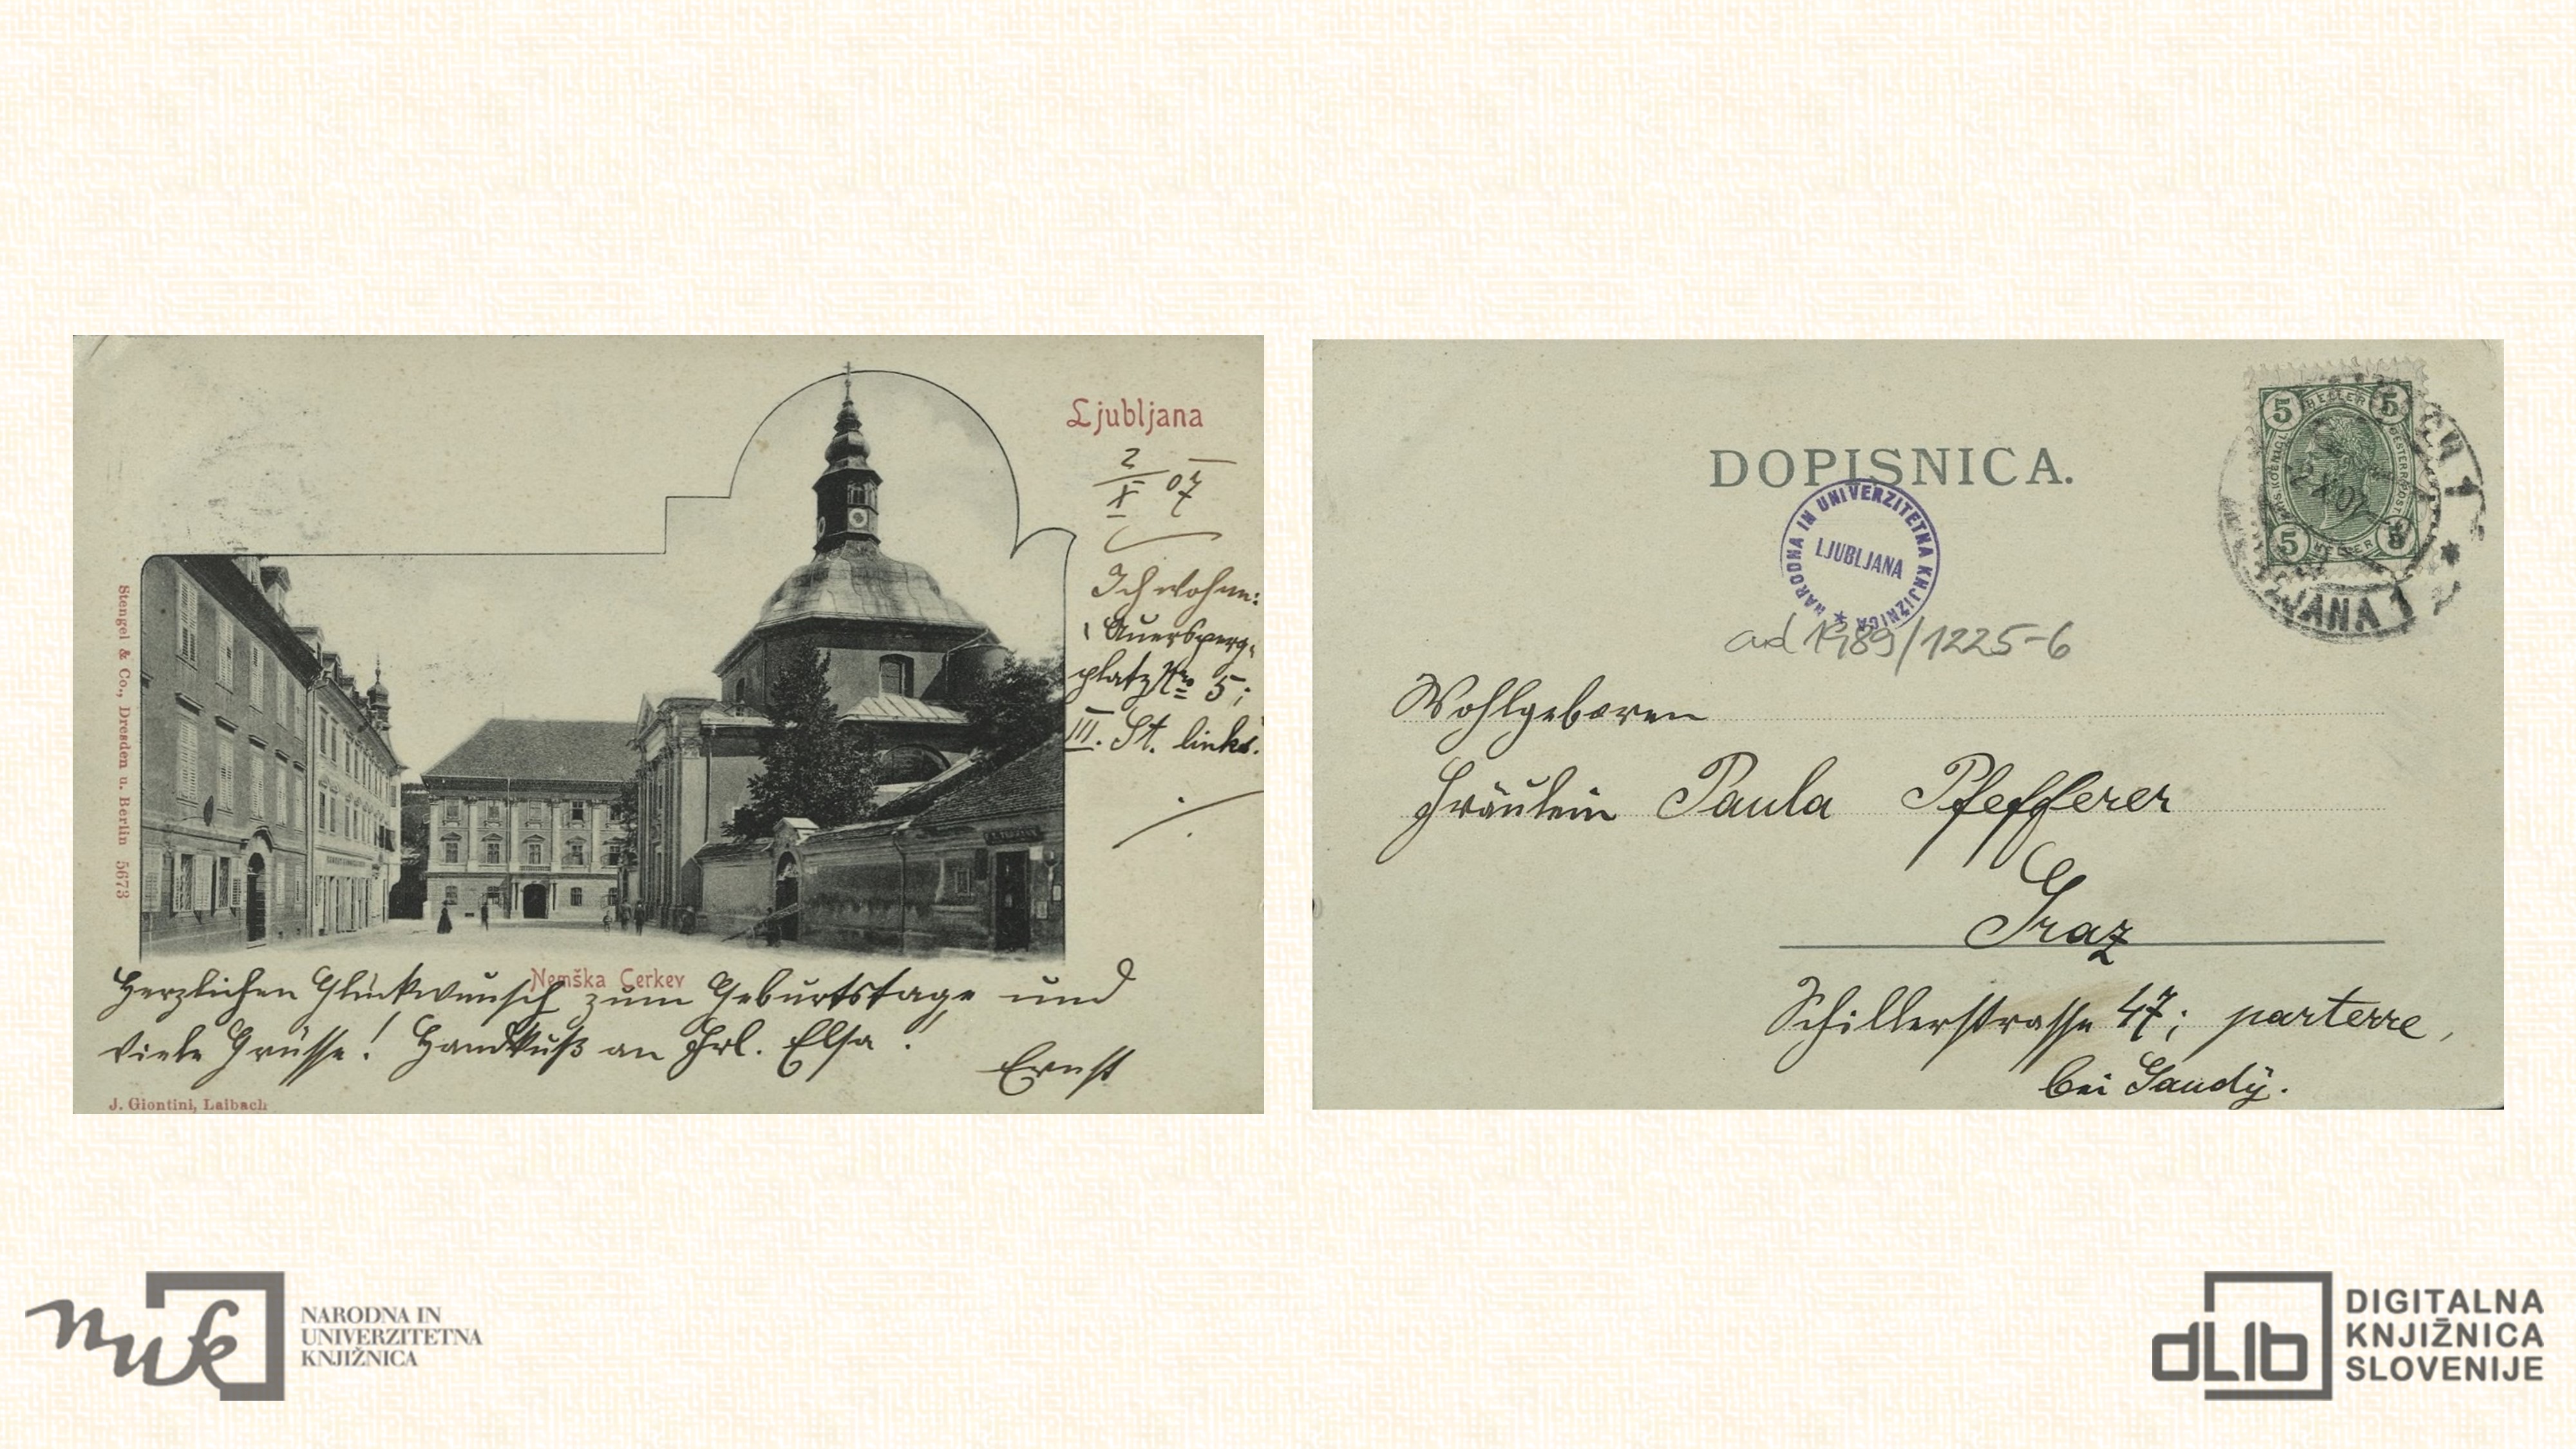 Ljubljana
2/X 07
Ich wohne:
Auersperg-
platz Nro 5;
III. St. links.
Stengel & Co., Dresden u. Berlin 5673
Nemška Cerkev
Herzlichen Glückwunsch zum Geburtstage und
viele Grüsse! Handkuß an Frl. Elsa!
Ernst
J. Giontini, Laibach
DOPISNICA.
NARODNA IN UNIVERZITETNA KNJIŽNICA
LJUBLJANA
ad 1989/1225-6
5 HELLER 5
5 HELLER 5
Wohlgeboren
Fräulein Paula Pfefferer
Graz
Schillerstrasse 47; parterre,
bei Gaudÿ.
nuk
NARODNA IN
UNIVERZITETNA
KNJIŽNICA
dLib
DIGITALNA
KNJIŽNICA
SLOVENIJE